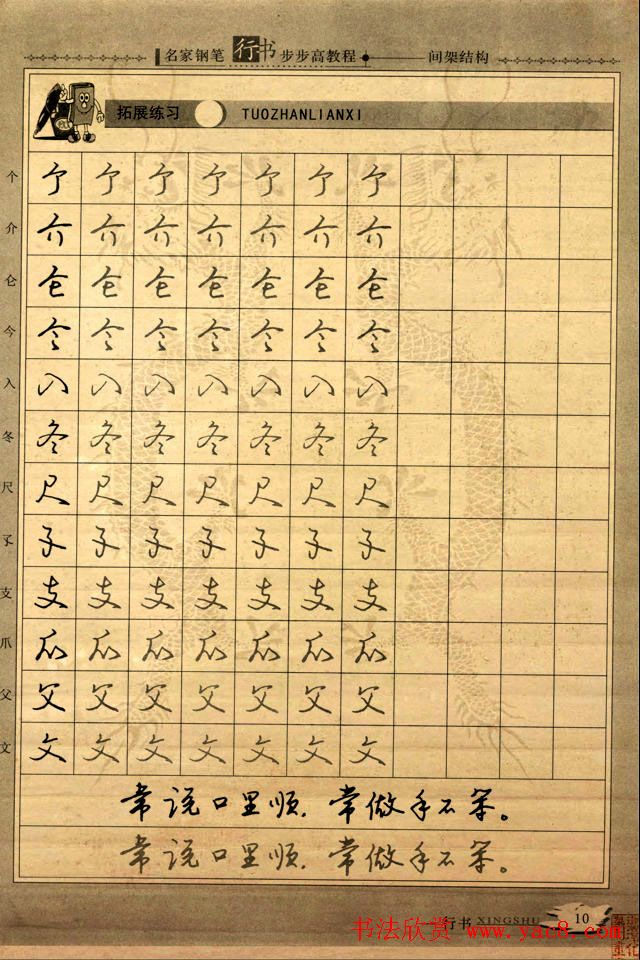 名家钢笔行书步步高教程 间架结构
拓展练习 TUOZHANLIANXI
个 个 个 个 个 个 个 个
介 介 介 介 介 介 介 介
仑 仑 仑 仑 仑 仑 仑 仑
今 今 今 今 今 今 今 今
入 入 入 入 入 入 入 入
冬 冬 冬 冬 冬 冬 冬 冬
尺 尺 尺 尺 尺 尺 尺 尺
子 子 子 子 子 子 子 子
支 支 支 支 支 支 支 支
爪 爪 爪 爪 爪 爪 爪 爪
父 父 父 父 父 父 父 父
文 文 文 文 文 文 文 文
常说口里顺,常做手不笨。
常说口里顺,常做手不笨。
行书 XINGSHU 10
书法欣赏 www.yac8.com